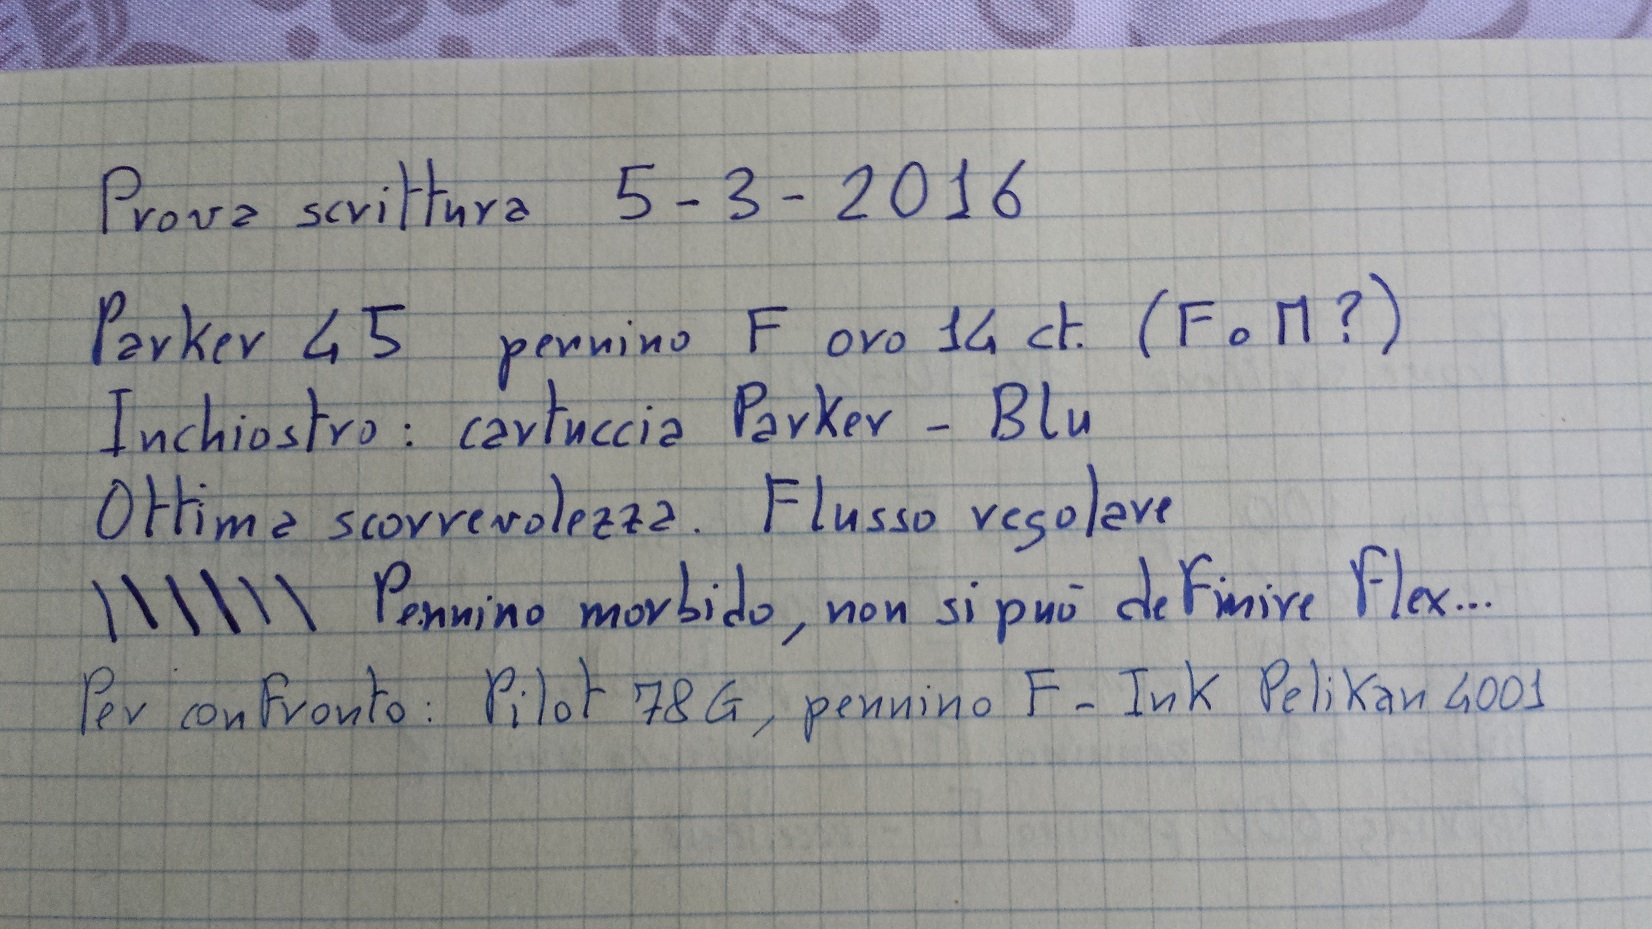 Prova scrittura 5-3-2016
Parker 45 pennino F oro 14 ct. (F o M?)
Inchiostro: cartuccia Parker - Blu
Ottima scorrevolezza. Flusso regolare
\\\\\\\ Pennino morbido, non si può definire Flex...
Per confronto: Pilot 78G, pennino F - Ink Pelikan 4001